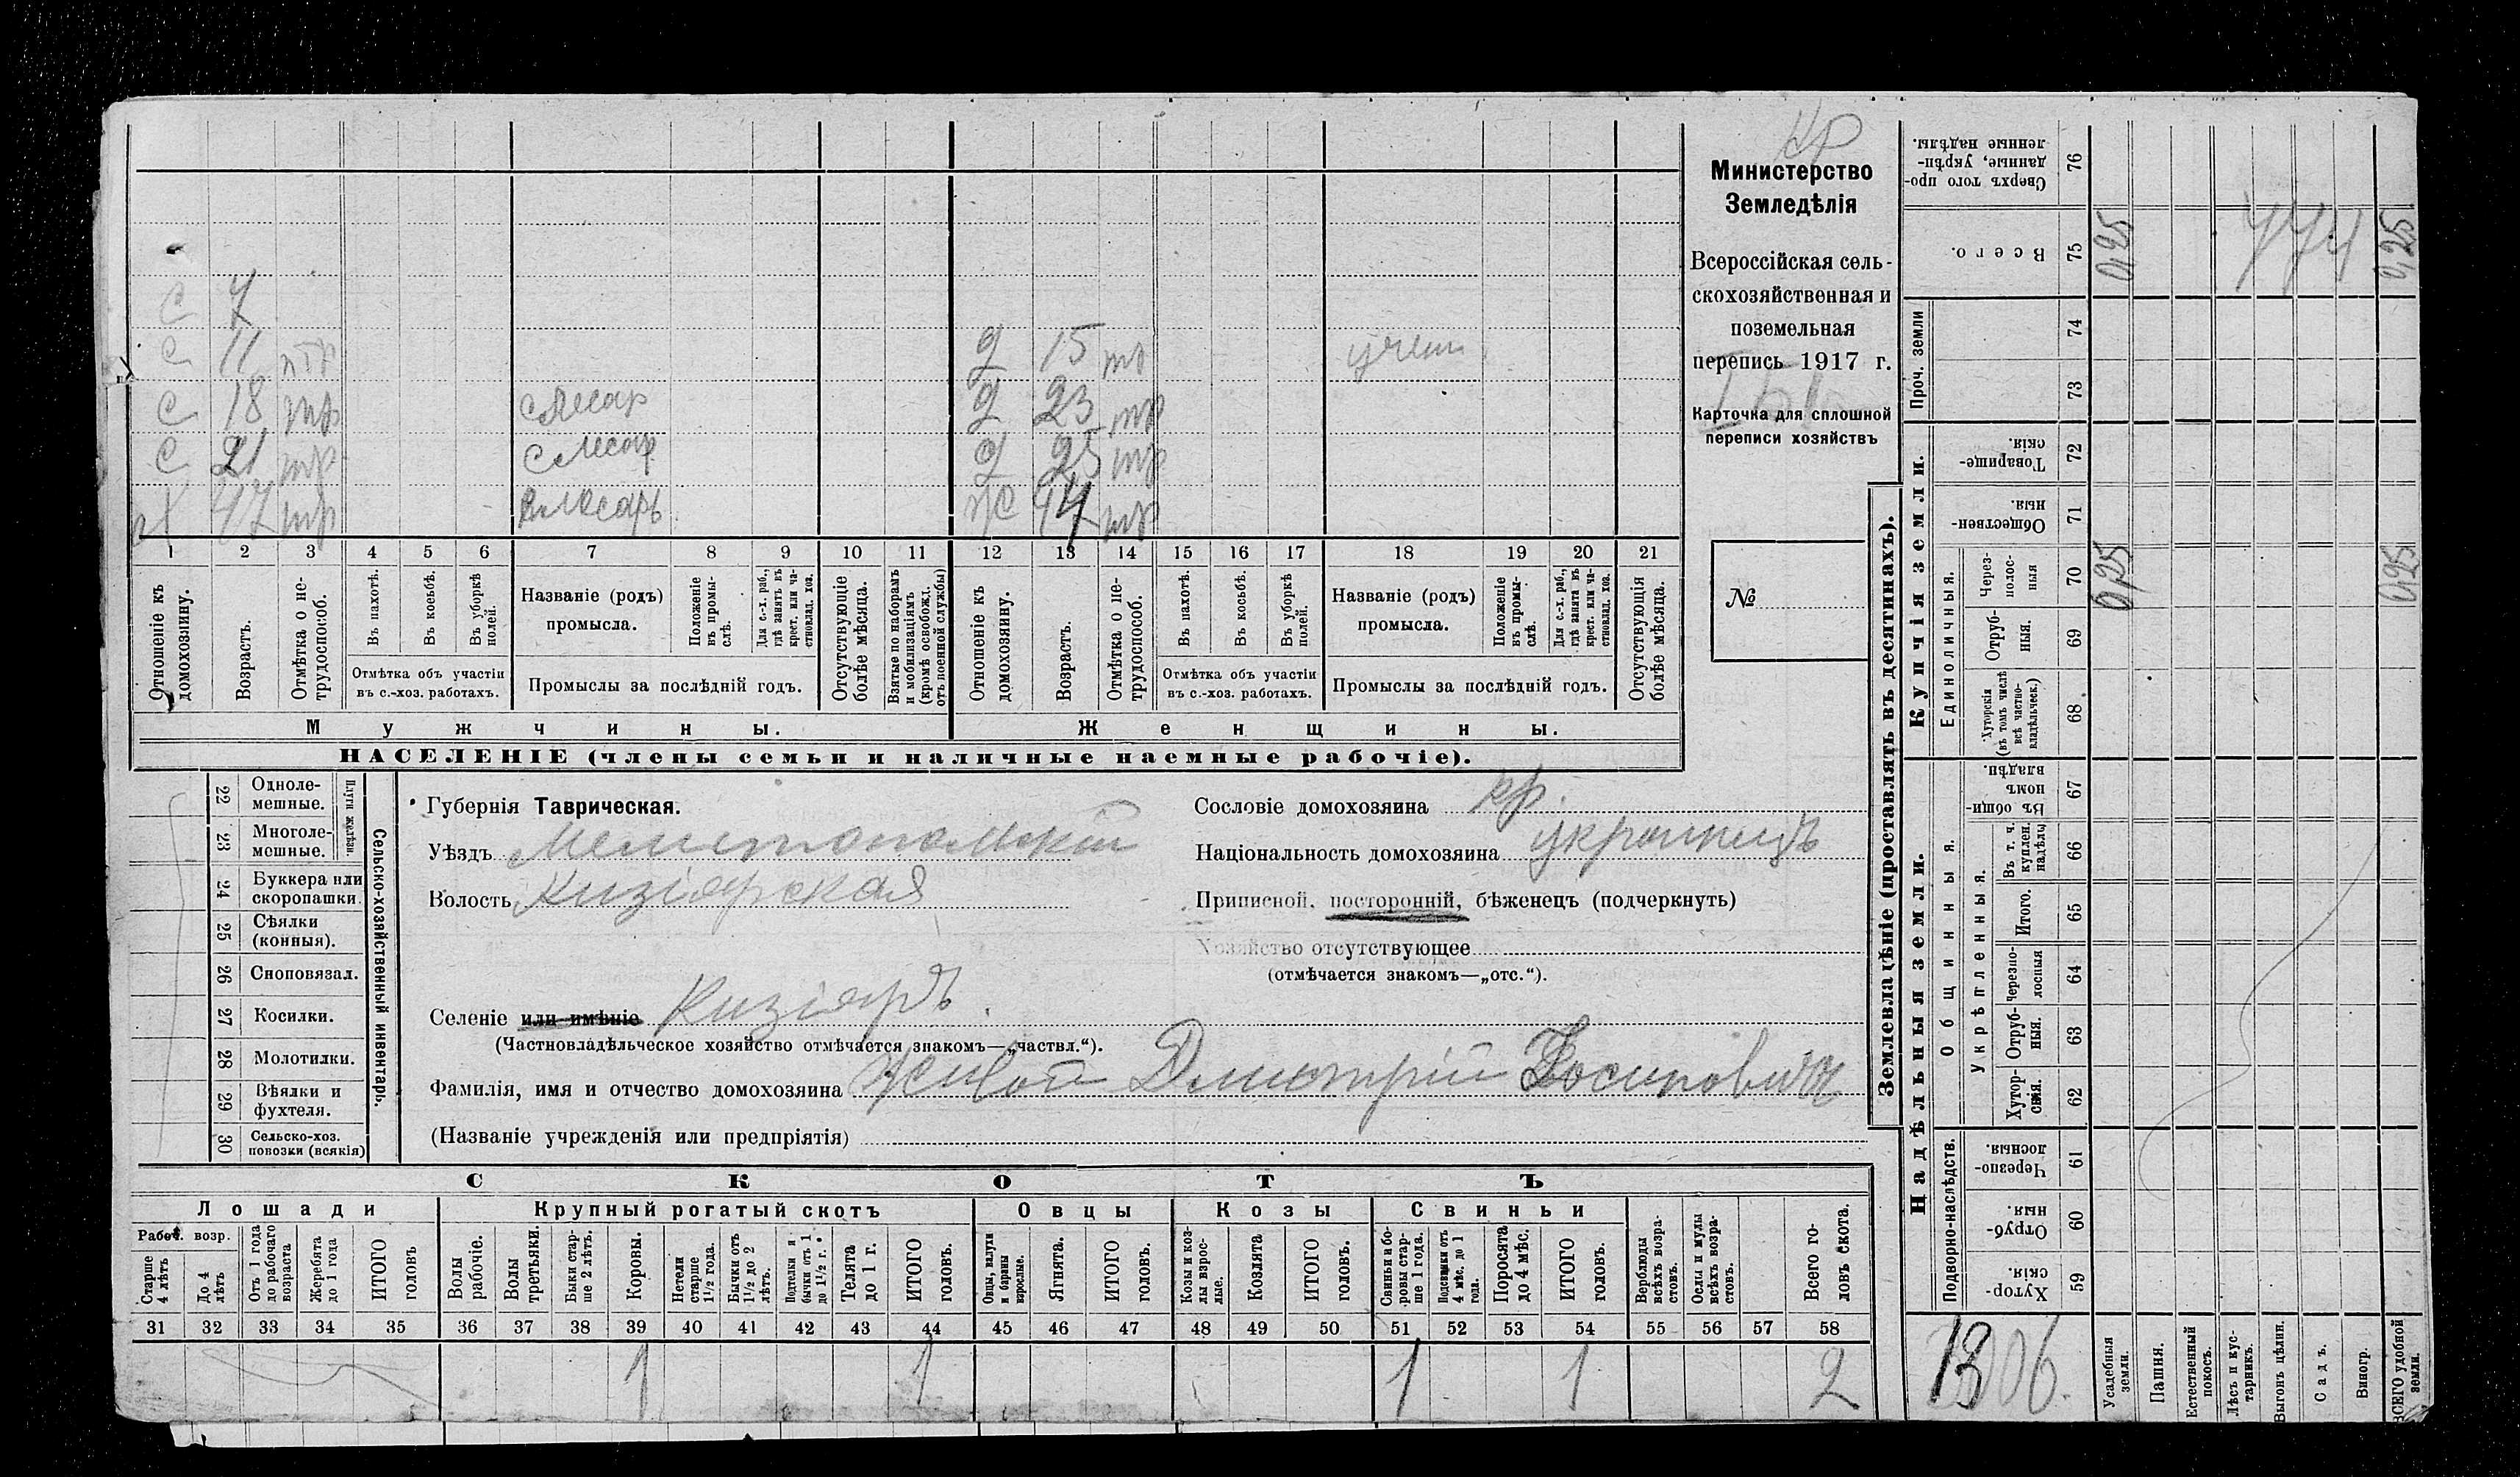 кр
Министерство
Земледѣлія
Всероссійская сель-
скохозяйственная и
поземельная
перепись 1917 г.
Карточка для сплошной
переписи хозяйствъ
№
с 7
с 11
д 15 учен
с 18 тр слесар
д 23 тр
с 21 тр слесар
д 25 тр
х 47 тр слесарь
ж 44 тр
1 2 3 4 5 6 7 8 9 10 11 12 13 14 15 16 17 18 19 20 21
Отношеніе къ домохозяину.
Возрастъ.
Отмѣтка о не-трудоспособ.
Въ пахотѣ.
Въ косьбѣ.
Въ уборкѣ полей.
Отмѣтка объ участіи
въ с.-хоз. работахъ.
Названіе (родъ)
промысла.
Положеніе въ промы-слѣ.
Для с.-х. раб., гдѣ занятъ въ крест. или ча-стновлад. хоз.
Промыслы за послѣдній годъ.
Отсутствующіе болѣе мѣсяца.
Взятые по наборамъ и мобилизаціямъ (кромѣ освобожд. отъ военной службы)
Отношеніе къ домохозяину.
Возрастъ.
Отмѣтка о не-трудоспособ.
Въ пахотѣ.
Въ косьбѣ.
Въ уборкѣ полей.
Отмѣтка объ участіи
въ с.-хоз. работахъ.
Названіе (родъ)
промысла.
Положеніе въ промы-слѣ.
Для с.-х. раб., гдѣ занята въ крест. или ча-стновлад. хоз.
Промыслы за послѣдній годъ.
Отсутствующія болѣе мѣсяца.
Мужчины.
Женщины.
НАСЕЛЕНІЕ (члены семьи и наличные наемные рабочіе).
22 Одноле-
мешные.
23 Многоле-
мешные.
Плуги желѣзн.
24 Буккера или
скоропашки.
25 Сѣялки
(конныя).
26 Сноповязал.
27 Косилки.
28 Молотилки.
29 Вѣялки и
фухтеля.
30 Сельско-хоз.
повозки (всякія)
Сельско-хозяйственный инвентарь.
Губернія Таврическая.
Уѣздъ Мелитопольскій
Волость Кизіярская
Селеніе или имѣніе Кизіяръ.
(Частновладѣльческое хозяйство отмѣчается знакомъ—„частвл.“).
Фамилія, имя и отчество домохозяина Живой Дмитрій Іосиповичъ
(Названіе учрежденія или предпріятія)
Сословіе домохозяина кр.
Національность домохозяина украинецъ
Приписной, посторонній, бѣженецъ (подчеркнуть)
Хозяйство отсутствующее
(отмѣчается знакомъ—„отс.“).
СКОТЪ
Лошади
Крупный рогатый скотъ
Овцы
Козы
Свиньи
Рабоч. возр.
Старше 4 лѣтъ
До 4 лѣтъ
Отъ 1 года до рабочаго возраста
Жеребята до 1 года
ИТОГО головъ
Волы рабочіе.
Волы третьяки.
Быки стар-ше 2 лѣтъ.
Коровы.
Нетели старше 1½ года.
Бычки отъ 1½ до 2 лѣтъ.
Подтелки и бычки отъ 1 до 1½ г.
Телята до 1 г.
ИТОГО головъ.
Овцы, валухи и бараны взрослые.
Ягнята.
ИТОГО головъ.
Козы и коз-лы взрос-лые.
Козлята
ИТОГО головъ.
Свиньи и бо-ровы стар-ше 1 года.
Подсвинки отъ 4 мѣс. до 1 года.
Поросята до 4 мѣс.
ИТОГО головъ.
Верблюды всѣхъ возра-стовъ.
Ослы и мулы всѣхъ возра-стовъ.
Всего го-ловъ скота.
31 32 33 34 35 36 37 38 39 40 41 42 43 44 45 46 47 48 49 50 51 52 53 54 55 56 57 58
1 1 1 1 2
Землевладѣніе (проставлять въ десятинахъ).
Надѣльныя земли.
Купчія земли.
Проч. земли
Подворно-наслѣдств.
Общинныя.
Укрѣпленныя.
Единоличныя.
Сверхъ того про-данные, укрѣп-ленные надѣлы. 76
Всего. 75 0,25 0,25
74
73
Товарище-скія. 72
Обществен-ныя. 71
Через-полос-ныя 70 0,25 0,25
Отруб-ныя. 69
Хуторскія (въ томъ числѣ всѣ частно-владѣльческ.) 68
Въ общи-номъ владѣн. 67
Въ т. ч. куплен. надѣлы 66
Итого. 65
Черезпо-лосныя 64
Отруб-ныя. 63
Хутор-скія. 62
Черезпо-лосныя. 61
Отруб-ныя. 60
Хутор-скія. 59
Усадебныя земли.
Пашня.
Естественный покосъ.
Лѣсъ и кус-тарникъ.
Выгонъ цѣлин.
Садъ.
Виногр.
ВСЕГО удобной земли.